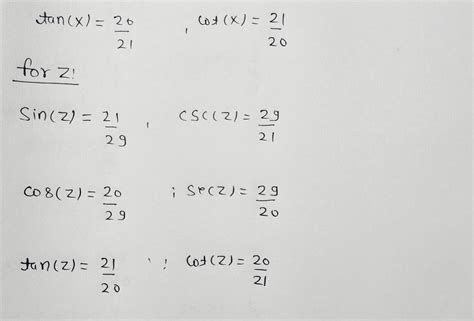 tan(x) = 20/21 , cot(x) = 21/20
for Z:
Sin(Z) = 21/29 , CSC(Z) = 29/21
cos(Z) = 20/29 ; Sec(Z) = 29/20
tan(Z) = 21/20 ; cot(Z) = 20/21